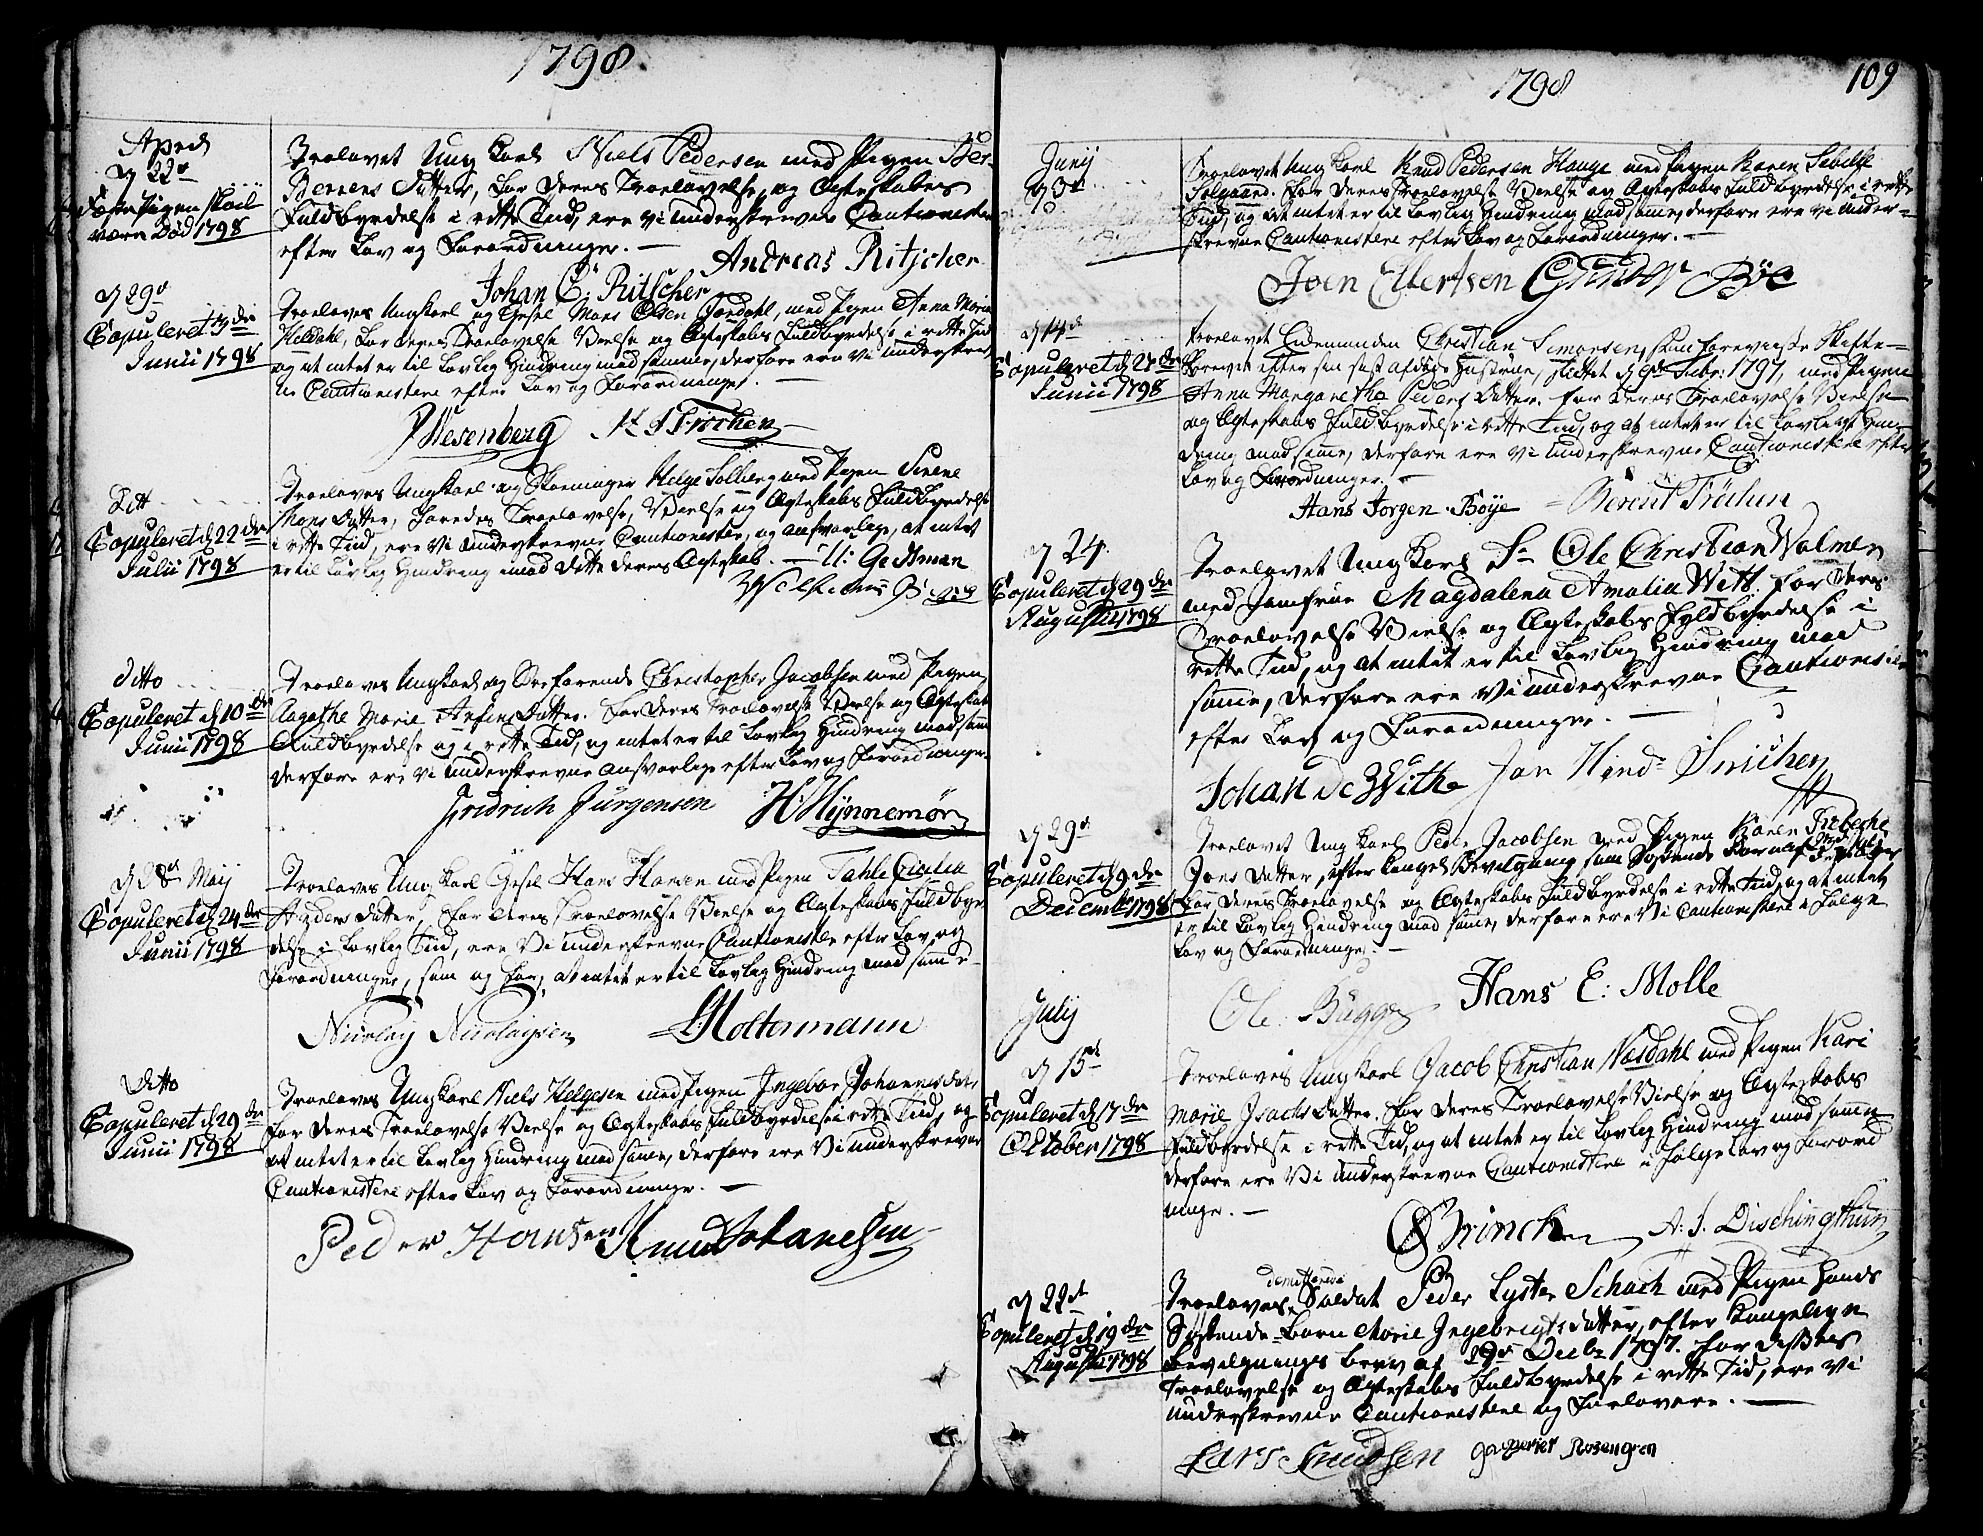 1798
Aprill
d 22d
Fæstepigen skal
være Død 1798
Troelovet Ung Karl Niels Pedersen med Pigen
Berens Datter, for deres Troelovelse, og Ægteskabes
Fuldbyrdelse i rette Tiid, ere vi underskrevne Cautionister
efter Lov og Forordninger. —
Andreas Ritscher
Johan C. Ritscher
d 29d
Copuleret d 3de
Junii 1798
Troeloves Ungkarl og Gesel Mons Olsen Jordahl, med Pigen Anna Maria
Heldahl, for deres Troelovelse Vielse og Ægteskabs Fuldbyrdelse i rette Tiid
og at intet er til Lovlig Hindring mod samme, derfore ere vi underskrev-
ne Cautionistere efter Lov og Forordninger. —
Wesenberg Trochen
Ditt
Copuleret d 22de
Julii 1798
Troeloves Ungkarl og Helge Solberg med Pigen Sirene
Mons Datter, for deres Troelovelse, Vielse og Ægteskabs Fuldbyrdelse
i rette Tiid, ere Vi underskrevne Cautionister, og ansvarlige, at intet
er til Lovlig Hindring imod dette deres Ægteskab. —
ditto
Copuleret d 10de
Junii 1798
Troeloves Ungkarl og Søefarende Christopher Jacobsen med Pigen
Aagathe Marie Datter. for deres Troelovelse Vielse og Ægteskabs
Fuldbyrdelse og i rette Tiid, og intet er til Lovlig Hindring mod samme
derfore ere vi underskrevne ansvarlige efter Lov og Forordninger.
Fridrich Jürgensen H Hÿnnemør
d 28de Maij
Copuleret d 24de
Junii 1798
Troeloves Ung Karl Gesel Hans Hansen med Pigen Tahle
Datter, for deres Troelovelse Vielse og Ægteskabs Fuldbyr-
delse i Lovlig Tiid, ere Vi underskrevne Cautionister efter Lov og
Forordninger, som og for, at intet er til Lovlig Hindring mod samme.
Nicolay Nicolaysen Holtermann
Ditto
Copuleret d 29de
Junii 1798
Troeloves Ung Karl Niels Helgesen med Pigen Ingebor Johannisdat,
for deres Troelovelse Vielse og Ægteskabs Fuldbyrdelse i rette Tiid, og
at intet er til Lovlig Hindring mod samme, derfore ere Vi underskrevne
Cautionistere efter Lov og Forordninger. —
Peder Hansen Knud Johanesen
1798
109
Junij
d 3de
Troelovet Ung Karl Knud Pedersen Hauge med Pigen Karen Sebelle
Solgaard. for deres Troelovelse Vielse og Ægteskabs Fuldbyrdelse i rette
Tiid, og at intet er til Lovlig Hindring mod samme, derfore ere vi under-
skrevne Cautionistere efter Lov og Forordninger. —
Joen Ellertsen Böe
d 14de
Copuleret d 27de
Junii 1798
Troelovet Enkemanden Christian Simonsen, som foreviiste Skifte-
brevet efter sin sidst afdøde Hustrue, sluttet d 9de Febr: 1797, med Pigen
Anna Margaretha Peders Datter. for deres Troelovelse Vielse
og Ægteskabs Fuldbyrdelse i rette Tiid, og at intet er til Lovlig Hin-
dring mod samme, derfore ere Vi underskrevne Cautionistere efter
Lov og Forordninger. —
Hans Jørgen Bøye Berent Trøchen
d 24.
Copuleret d 29de
Augustii 1798
Troelovet Ung Karl Sr Ole Christian Wolmer
med Jomfrue Magdalena Amalia Witt. for deres
Troelovelse Vielse og Ægteskabs Fyldbyrdelse i
rette Tiid, og at intet er til Lovlig Hindring mod
samme, derfore ere Vi underskrevne Cautionister
efter Lov og Forordninger. —
Johan de Withe Jan Hind
d 29d
Copuleret d 9de
December 1798
Troelovet Ung Karl Peder Jacobsen med Pigen Karen
Jons Datter, efter Kongel: Bevilgning som Sødskende Børn af
for deres Troelovelse og Ægteskabs Fuldbyrdelse i rette Tiid, og at intet
er til Lovlig Hindring mod samme, derfore ere Vi Cautionistere i Følge
Lov og Forordninger. —
Ole Bugge Hans E: Molle
Julij
d 15de
Copuleret d 17de
October 1798
Troeloves Ung Karl Jacob Christian Næsdahl med Pigen Kari
Marie Isachs Datter. for deres Troelovelse Vielse og Ægteskabs
Fuldbyrdelse i rette Tiid, og at intet er til Lovlig Hindring mod samme
derfore ere Vi underskrevne Cautionistere i Følge Lov og Forord
ninger. —
Brinch A. J. Dischingthun
d 22de
Copuleret d 19de
Augustii 1798
demitterede
Troeloves Soldat Peder Lyster Schach med Pigen hands
Sødskende-Barn Marie Ingebrigts Datter, efter Kongelige
Bevilgnings brev af 19d Decbr 1797. for disses
Troelovelse og Ægteskabs Fuldbyrdelse i rette Tid, ere Vi
underskrevne Cautionistere og Forlovere. —
Lars Knudsen Rosengren